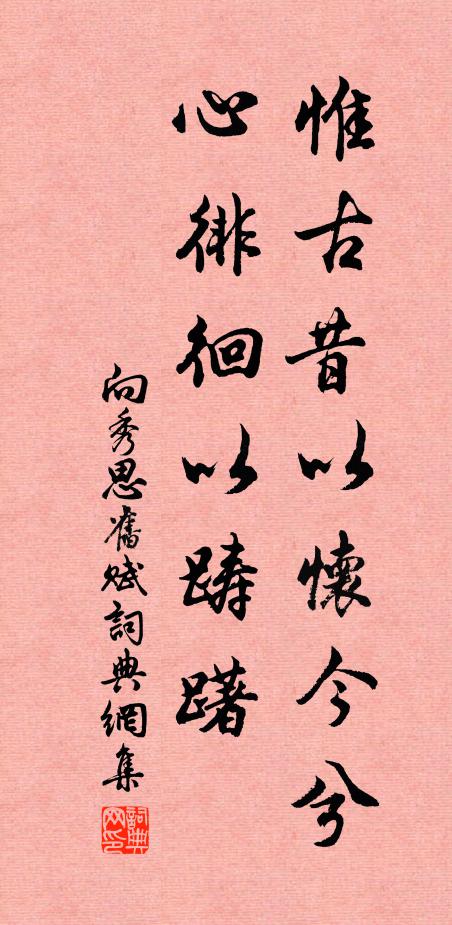 惟古昔以懷今兮
心徘徊以躊躇
向秀思舊賦詞典網集
詞典网印